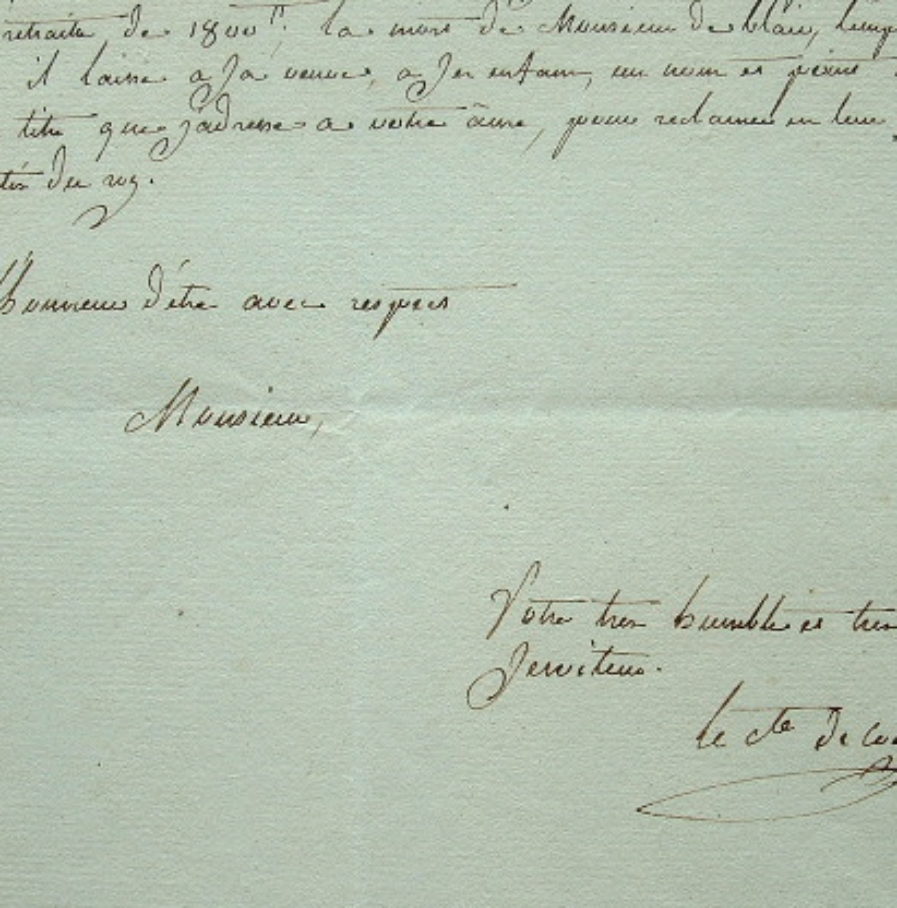 retraite de 1800ᵗᵗ; la mort de Monsieur de blair,
il laisse a Sa veuve, a Ses enfans, un nom et
titre que j'adresse a votre âme, pour reclamer en leur
du roy.
honneur d'être avec respect
Monsieur,
Votre tres humble et tres
Serviteur.
le cte de